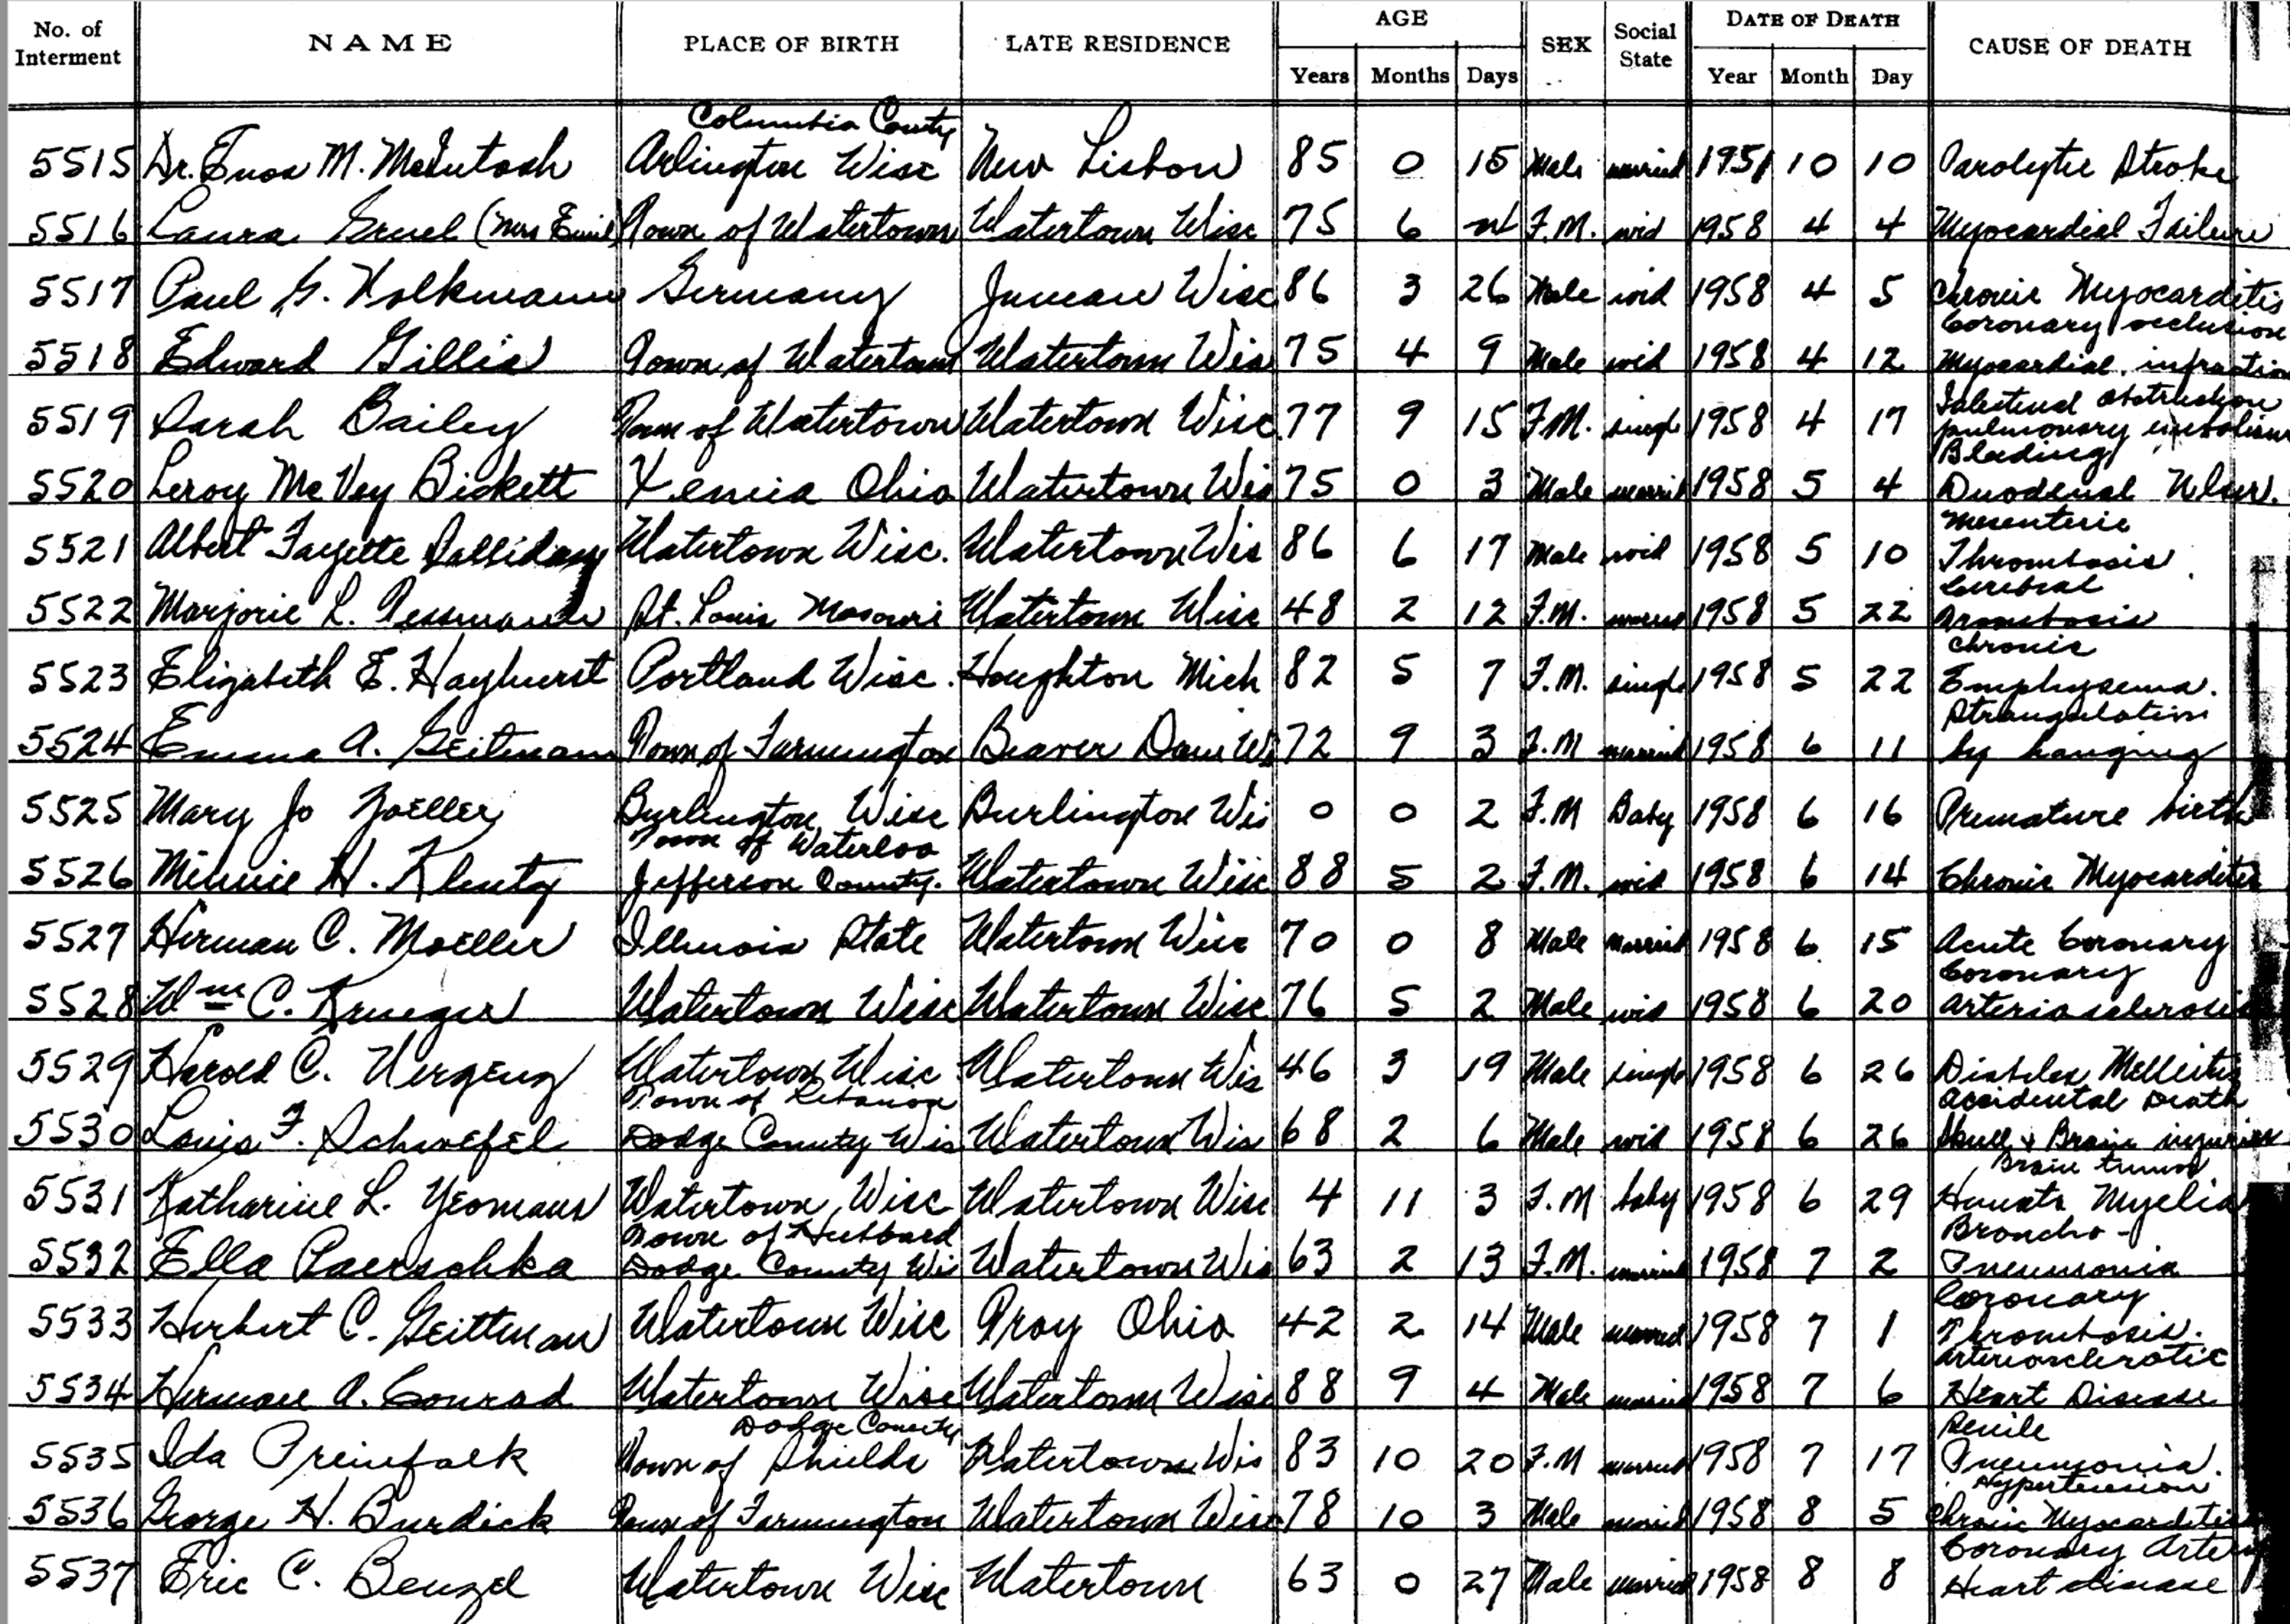 No. of Interment NAME PLACE OF BIRTH LATE RESIDENCE AGE SEX Social State DATE OF DEATH CAUSE OF DEATH
Years Months Days Year Month Day
Columbia County
5515 Dr. Enos M. McIntosh Arlington Wisc New Lisbon 85 0 15 Male married 1951 10 10 Paralytic Stroke
5516 Laura Gruel (Mrs Emil) Town of Watertown Watertown Wisc 75 6 F.M. wid 1958 4 4 Myocardial Failure
5517 Paul G. Volkmann Germany Juneau Wisc 86 3 26 Male wid 1958 4 5 Chronic Myocarditis
Coronary occlusion
5518 Edward Gillis Town of Watertown Watertown Wis 75 4 9 Male wid 1958 4 12 Myocardial infraction
Intestinal obstruction
5519 Sarah Bailey Town of Watertown Watertown Wisc. 77 9 15 F.M. single 1958 4 17 pulmonary embolism
Bleeding
5520 Leroy McVey Bickett Xenia Ohio Watertown Wis 75 0 3 Male married 1958 5 4 Duodenal Ulcer.
Mesenteric
5521 Albert Fayette Salliday Watertown Wisc. Watertown Wis 86 6 17 Male wid 1958 5 10 Thrombosis
Cerebral
5522 Marjorie L. St. Louis Watertown Wisc 48 2 12 F.M. married 1958 5 22 Trombosis
Chronic
5523 Elizabeth E. Hayhurst Portland Wisc. Houghton Mich 82 5 7 F.M. single 1958 5 22 Emphysema.
Strangulation
5524 Emma A. Geitman Town of Farmington Beaver Dam Wi 72 9 3 F.M married 1958 6 11 by hanging
5525 Mary Jo Zoeller Burlington Wisc Burlington Wis 0 0 2 F.M Baby 1958 6 16 Premature birth
Town of Waterloo
5526 Minnie H. Klenty Jefferson County. Watertown Wisc 88 5 2 F.M. wid 1958 6 14 Chronic Myocarditis
5527 Herman C. Moeller Illinois State Watertown Wisc 70 0 8 Male married 1958 6 15 Acute Coronary
Coronary
5528 Wm C. Krueger Watertown Wisc Watertown Wisc 76 5 2 Male wid 1958 6 20 arteriosclerosis
5529 Harold C. Wergeng Watertown Wisc Watertown Wis 46 3 19 Male single 1958 6 26 Diabetes Mellitis
Town of Lebanon Accidental Death
5530 Louis F. Schwefel Dodge County Wis Watertown Wis 68 2 6 Male wid 1958 6 26 Skull & Brain injuries
Brain tumor
5531 Katharine L. Yeomans Watertown Wisc Watertown Wisc 4 11 3 F.M baby 1958 6 29 Myelia
Town of Hubbard Broncho -
5532 Ella Paerschka Dodge County Wis Watertown Wis 63 2 13 F.M. married 1958 7 2 Pneumonia
Coronary
5533 Herbert C. Geittman Watertown Wisc Troy Ohio 42 2 14 Male married 1958 7 1 Thrombosis.
Arteriosclerotic
5534 Herman A. Conrad Watertown Wisc Watertown Wisc 88 9 4 Male married 1958 7 6 Heart Disease
Dodge County Senile
5535 Ida Preinfalk Town of Shields Watertown Wis 83 10 20 F.M married 1958 7 17 Pneumonia.
Hypertension
5536 George H. Burdick Town of Farmington Watertown Wisc 78 10 3 Male married 1958 8 5 Chronic Myocarditis
Coronary Artery
5537 Eric C. Benzel Watertown Wisc Watertown 63 0 27 Male married 1958 8 8 Heart disease